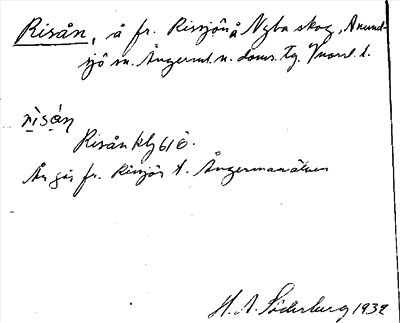 Risån, å fr. Rissjön å Nyba skog, Anund-
sjö sn. Ångerml. n. doms. Tg. Vnorrl. l.
rìsán
Risån kly 61 ö.
Ån går fr. Rissjön t. Ångermanälven
H. A. Söderburg 1932